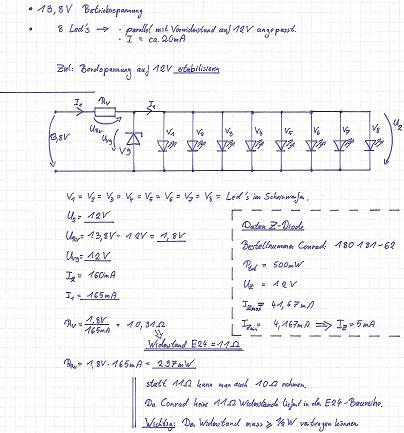 • 13,8V Betriebsspannung
• 8 Led's → · parallel mit Vorwiderstand auf 12V angepasst.
· I = ca. 20mA
Ziel: Bordspannung auf 12V stabilisieren
I₁ Rv I₂
13,8V U_Rv U_V9 V9 V₁ V₂ V₃ V₄ V₅ V₆ V₇ V₈ U₂
V₁ = V₂ = V₃ = V₄ = V₅ = V₆ = V₇ = V₈ = Led's im Scheinwerfer.
U₂ = 12V
U_Rv = 13,8V - 12V = 1,8V
U_V9 = 12V
I₂ = 160mA
I₁ = 165mA
Rv = 1,8V / 165mA = 10,91Ω
Widerstand E24 = 11Ω
P_Rv = 1,8V · 165mA = 297mW
Daten Z-Diode
Bestellnummer Conrad: 180181-62
P_tot = 500mW
U_Z = 12V
I_Zmax = 41,67mA
I_Zmin = 4,167mA ⇒ I_Z = 5mA
statt 11Ω kann man auch 10Ω nehmen.
Da Conrad keine 11Ω Widerstände liefert in der E24-Baureihe.
Wichtig: Der Widerstand muss ≥ ⅓W vertragen können